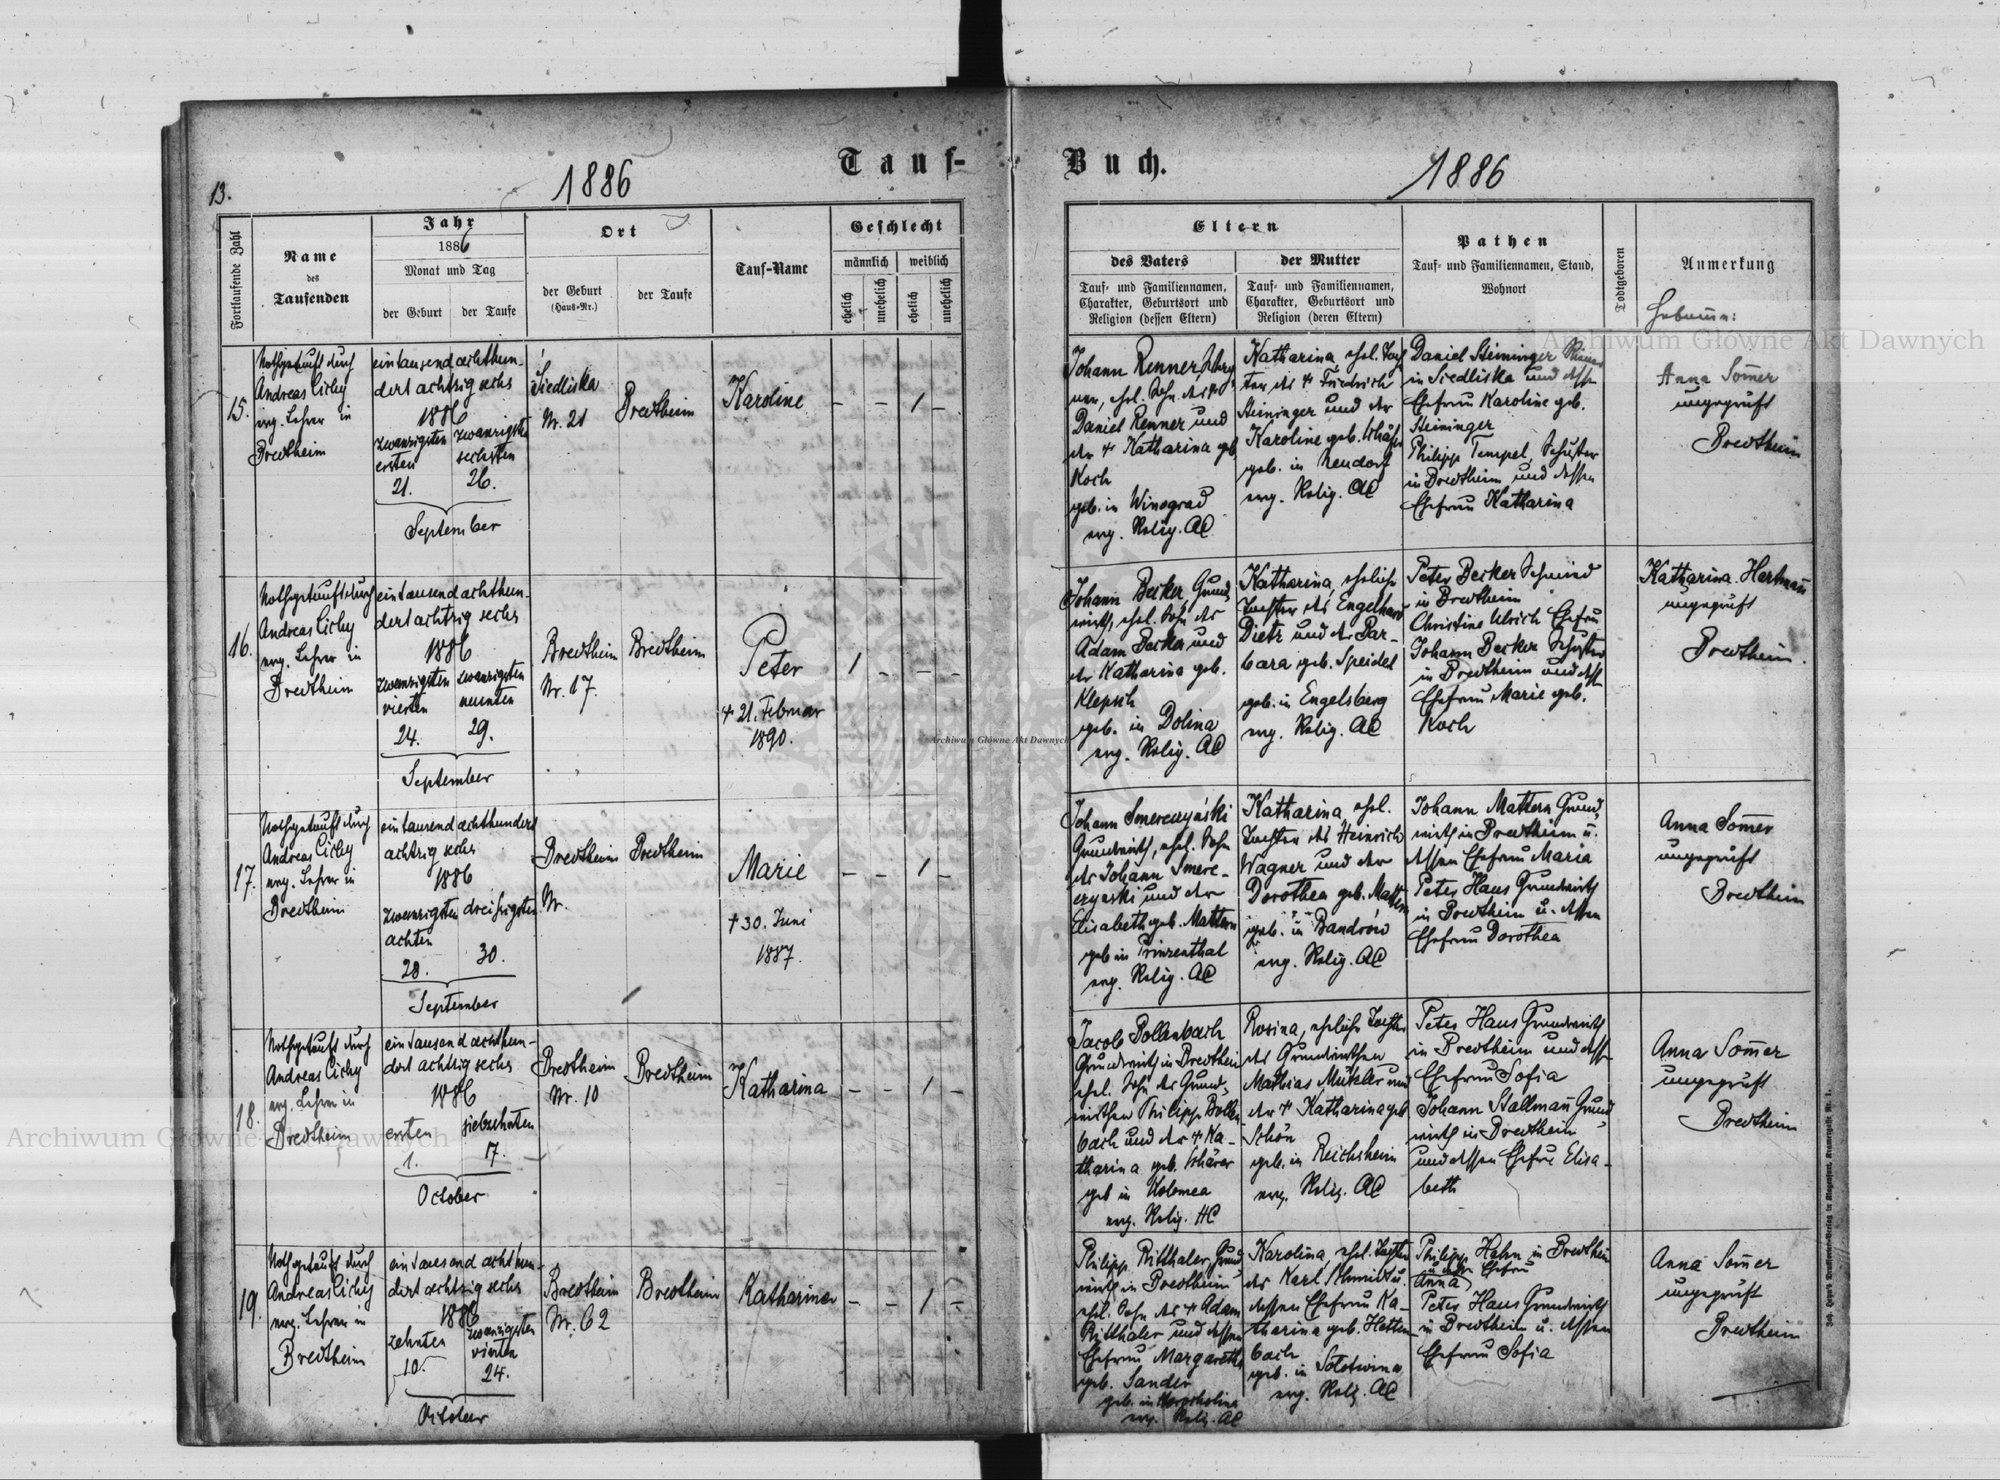 13.
1886
Tauf-
Buch.
1886
Fortlaufende Zahl
Name
des
Taufenden
Jahr
1886
Monat und Tag
der Geburt
der Taufe
Ort
der Geburt
(Haus-Nr.)
der Taufe
Tauf-Name
Geschlecht
männlich
weiblich
ehelich
unehelich
ehelich
unehelich
Eltern
des Vaters
Tauf- und Familiennamen,
Charakter, Geburtsort und
Religion (dessen Eltern)
der Mutter
Tauf- und Familiennamen,
Charakter, Geburtsort und
Religion (deren Eltern)
Pathen
Tauf- und Familiennamen, Stand,
Wohnort
Todtgeboren
Anmerkung
15.
Nothgetauft durch
Andreas Cichy
evg. Lehrer in
Bredtheim
eintausend achthun-
dert achtzig sechs
1886
zwanzigsten
ersten
21.
zwanzigsten
sechsten
26.
September
Siedliska
Nr. 21
Bredtheim
Karoline
- - 1 -
Johann Renner
Daniel Renner und
der + Katharina geb.
Koch
geb. in Winograd
evg. Relig. AC
Katharina, ehel. Toch
ter des + Friedrich
Steininger und der
Karoline geb. Schäfer
geb. in Neudorf
evg. Relig. AC
Daniel Steininger
in Siedliska und dessen
Ehefrau Karoline geb.
Steininger
Philipp Tempel, Schuster
in Bredtheim und dessen
Ehefrau Katharina
Anna Som̄er
ungeprüft
Bredtheim
16.
Nothgetauft durch
Andreas Cichy
evg. Lehrer in
Bredtheim
eintausend achthun-
dert achtzig sechs
1886
zwanzigsten
vierten
24.
zwanzigsten
neunten
29.
September
Bredtheim
Nr. 17.
Bredtheim
Peter
+ 21. Februar
1890.
1 - - -
Johann Becker Grund-
wirth, ehel. Sohn des
Adam Becker und
der Katharina geb.
Klepsch
geb. in Dolina
evg. Relig. AC
Katharina, eheliche
Tochter des Engelhard
Dietz und der Bar-
bara geb. Speidel
geb. in Engelsberg
evg. Relig. AC
Peter Becker Schmied
in Bredtheim
Christine Ulrich Ehefrau
Johann Becker Schuster
in Bredtheim und dessen
Ehefrau Marie geb.
Koch
Katharina Hartman̄
ungeprüft
Bredtheim.
17.
Nothgetauft durch
Andreas Cichy
evg. Lehrer in
Bredtheim
eintausend achthundert
achtzig sechs
1886
zwanzigsten
achten
28.
dreißigsten
30.
September
Bredtheim
Nr.
Bredtheim
Marie
+ 30. Juni
1887.
- - 1 -
Johann Smereczyński
Grundwirth, ehel. Sohn
des Johann Smere-
czyński und der
Elisabeth geb. Mattern
geb. in Prinzenthal
evg. Relig. AC
Katharina, ehel.
Tochter des Heinrich
Wagner und der
Dorothea geb. Mattern
geb. in Bandrów
evg. Relig. AC
Johann Mattern Grund-
wirth in Bredtheim u.
dessen Ehefrau Maria
Peter Haus Grundwirth
in Bredtheim u. dessen
Ehefrau Dorothea
Anna Som̄er
ungeprüft
Bredtheim
18.
Nothgetauft durch
Andreas Cichy
evg. Lehrer in
Bredtheim
eintausend achthun-
dert achtzig sechs
1886
ersten
1.
siebzehnten
17.
October
Bredtheim
Nr. 10
Bredtheim
Katharina
- - 1 -
Jacob Bollenbach
Grundwirth in Bredtheim
ehel. Sohn des Grund-
wirthen Philipp Bollen-
bach und der + Ka-
tharina geb. Schärer
geb in Kolomea
evg. Relig. HC
Rosina, eheliche Tochter
des Grundwirthen
Mathias Mützler und
der + Katharina geb
Schön
geb. in Reichsheim
evg. Relig. AC
Peter Haus Grundwirth
in Bredtheim und dessen
Ehefrau Sofia
Johann Stallman̄ Grund-
wirth in Bredtheim
und dessen Ehefrau Elisa-
beth
Anna Som̄er
ungeprüft
Bredtheim
19.
Nothgetauft durch
Andreas Cichy
evg. Lehrer in
Bredtheim
eintausend achthun-
dert achtzig sechs
1886
zehnten
10.
zwanzigsten
vierten
24.
October
Bredtheim
Nr. 62
Bredtheim
Katharina
- - 1 -
Philipp Ritthaler Grund
wirth in Bredtheim
ehel. Sohn des + Adam
Ritthaler und dessen
Ehefrau Margaretha
geb. Sander
evg. Relig. AC
Karolina, ehel. Tochter
des Karl Schmidt u.
dessen Ehefrau Ka-
tharina geb. Hetten-
bach
geb. in Solotwina
evg. Relig. AC
Philipp Hahn in Bredtheim
u. dessen Ehefrau
Anna
Peter Haus Grundwirth
in Bredtheim u. dessen
Ehefrau Sofia
Anna Som̄er
ungeprüft
Bredtheim
Archiwum Główne Akt Dawnych
Archiwum Główne Akt Dawnych
Archiwum Główne Akt Dawnych